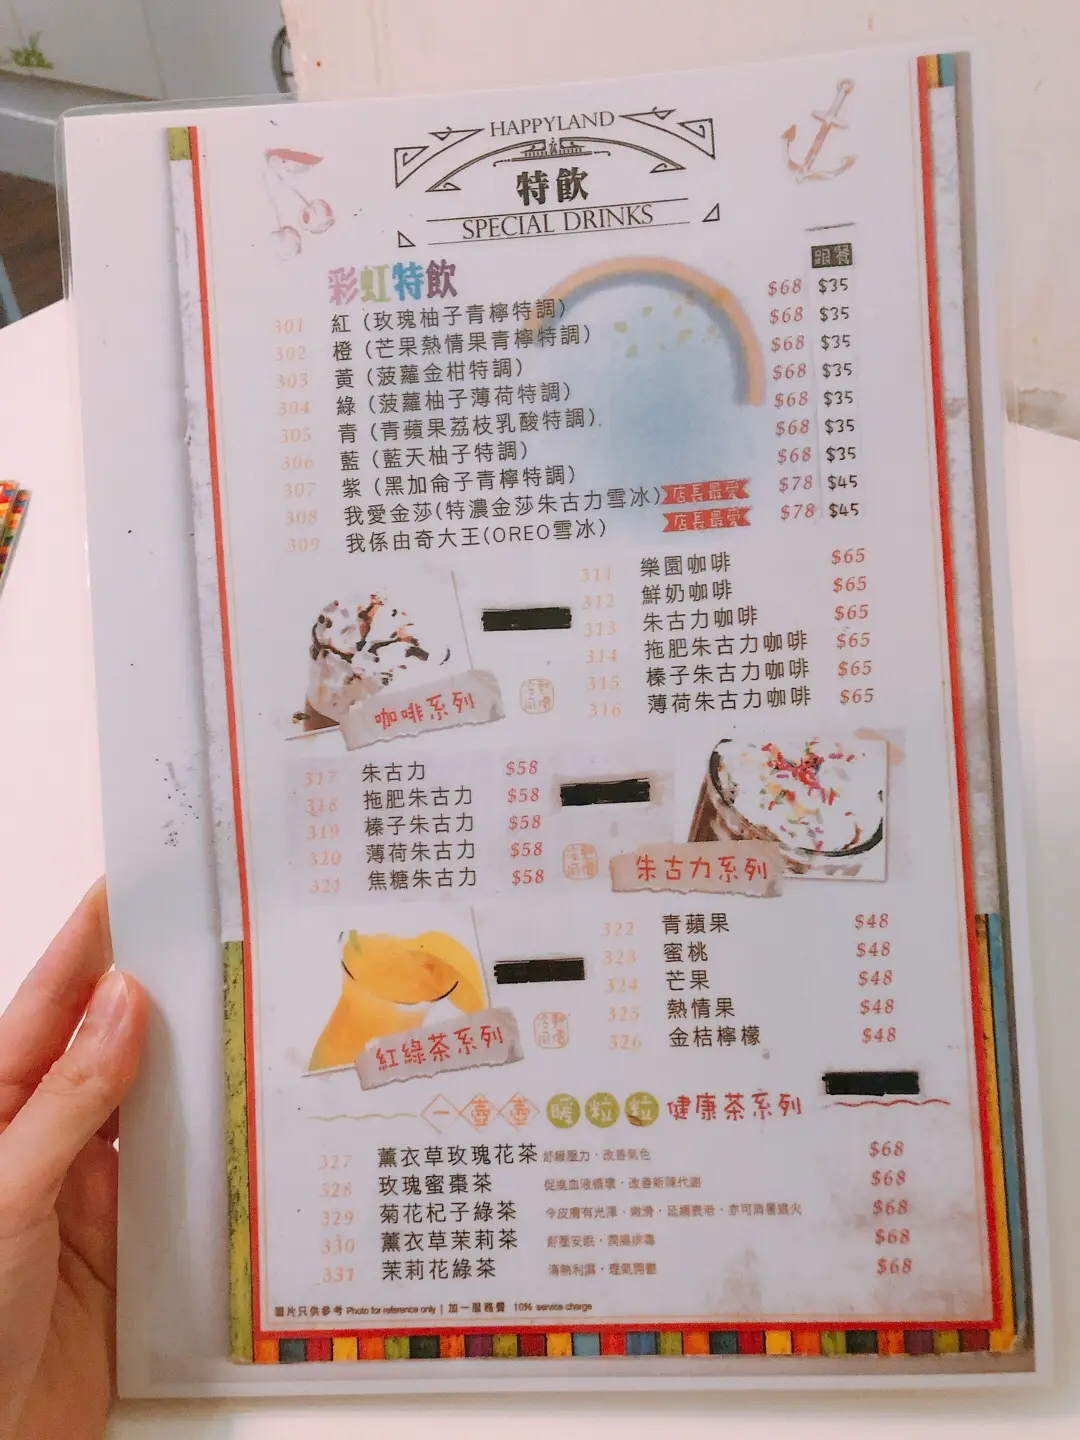 HAPPYLAND
特飲
SPECIAL DRINKS
彩虹特飲
跟餐
301 紅 (玫瑰柚子青檸特調) $68 $35
302 橙 (芒果熱情果青檸特調) $68 $35
303 黃 (菠蘿金柑特調) $68 $35
304 綠 (菠蘿柚子薄荷特調) $68 $35
305 青 (青蘋果荔枝乳酸特調) $68 $35
306 藍 (藍天柚子特調) $68 $35
307 紫 (黑加侖子青檸特調) $68 $35
308 我愛金莎(特濃金莎朱古力雪冰) 店長最愛 $78 $45
309 我係由奇大王(OREO雪冰) 店長最愛 $78 $45
咖啡系列
311 樂園咖啡 $65
312 鮮奶咖啡 $65
313 朱古力咖啡 $65
314 拖肥朱古力咖啡 $65
315 榛子朱古力咖啡 $65
316 薄荷朱古力咖啡 $65
317 朱古力 $58
318 拖肥朱古力 $58
319 榛子朱古力 $58
320 薄荷朱古力 $58
321 焦糖朱古力 $58
朱古力系列
紅綠茶系列
322 青蘋果 $48
323 蜜桃 $48
324 芒果 $48
325 熱情果 $48
326 金桔檸檬 $48
一壺壺 暖粒粒 健康茶系列
327 薰衣草玫瑰花茶 舒緩壓力，改善氣色 $68
328 玫瑰蜜棗茶 促進血液循環，改善新陳代謝 $68
329 菊花杞子綠茶 令皮膚有光澤，嫩滑，延緩衰老，亦可消暑退火 $68
330 薰衣草茉莉茶 舒壓安眠，潤腸排毒 $68
331 茉莉花綠茶 清熱利濕，理氣開鬱 $68
圖片只供參考 Photo for reference only | 加一服務費 10% service charge